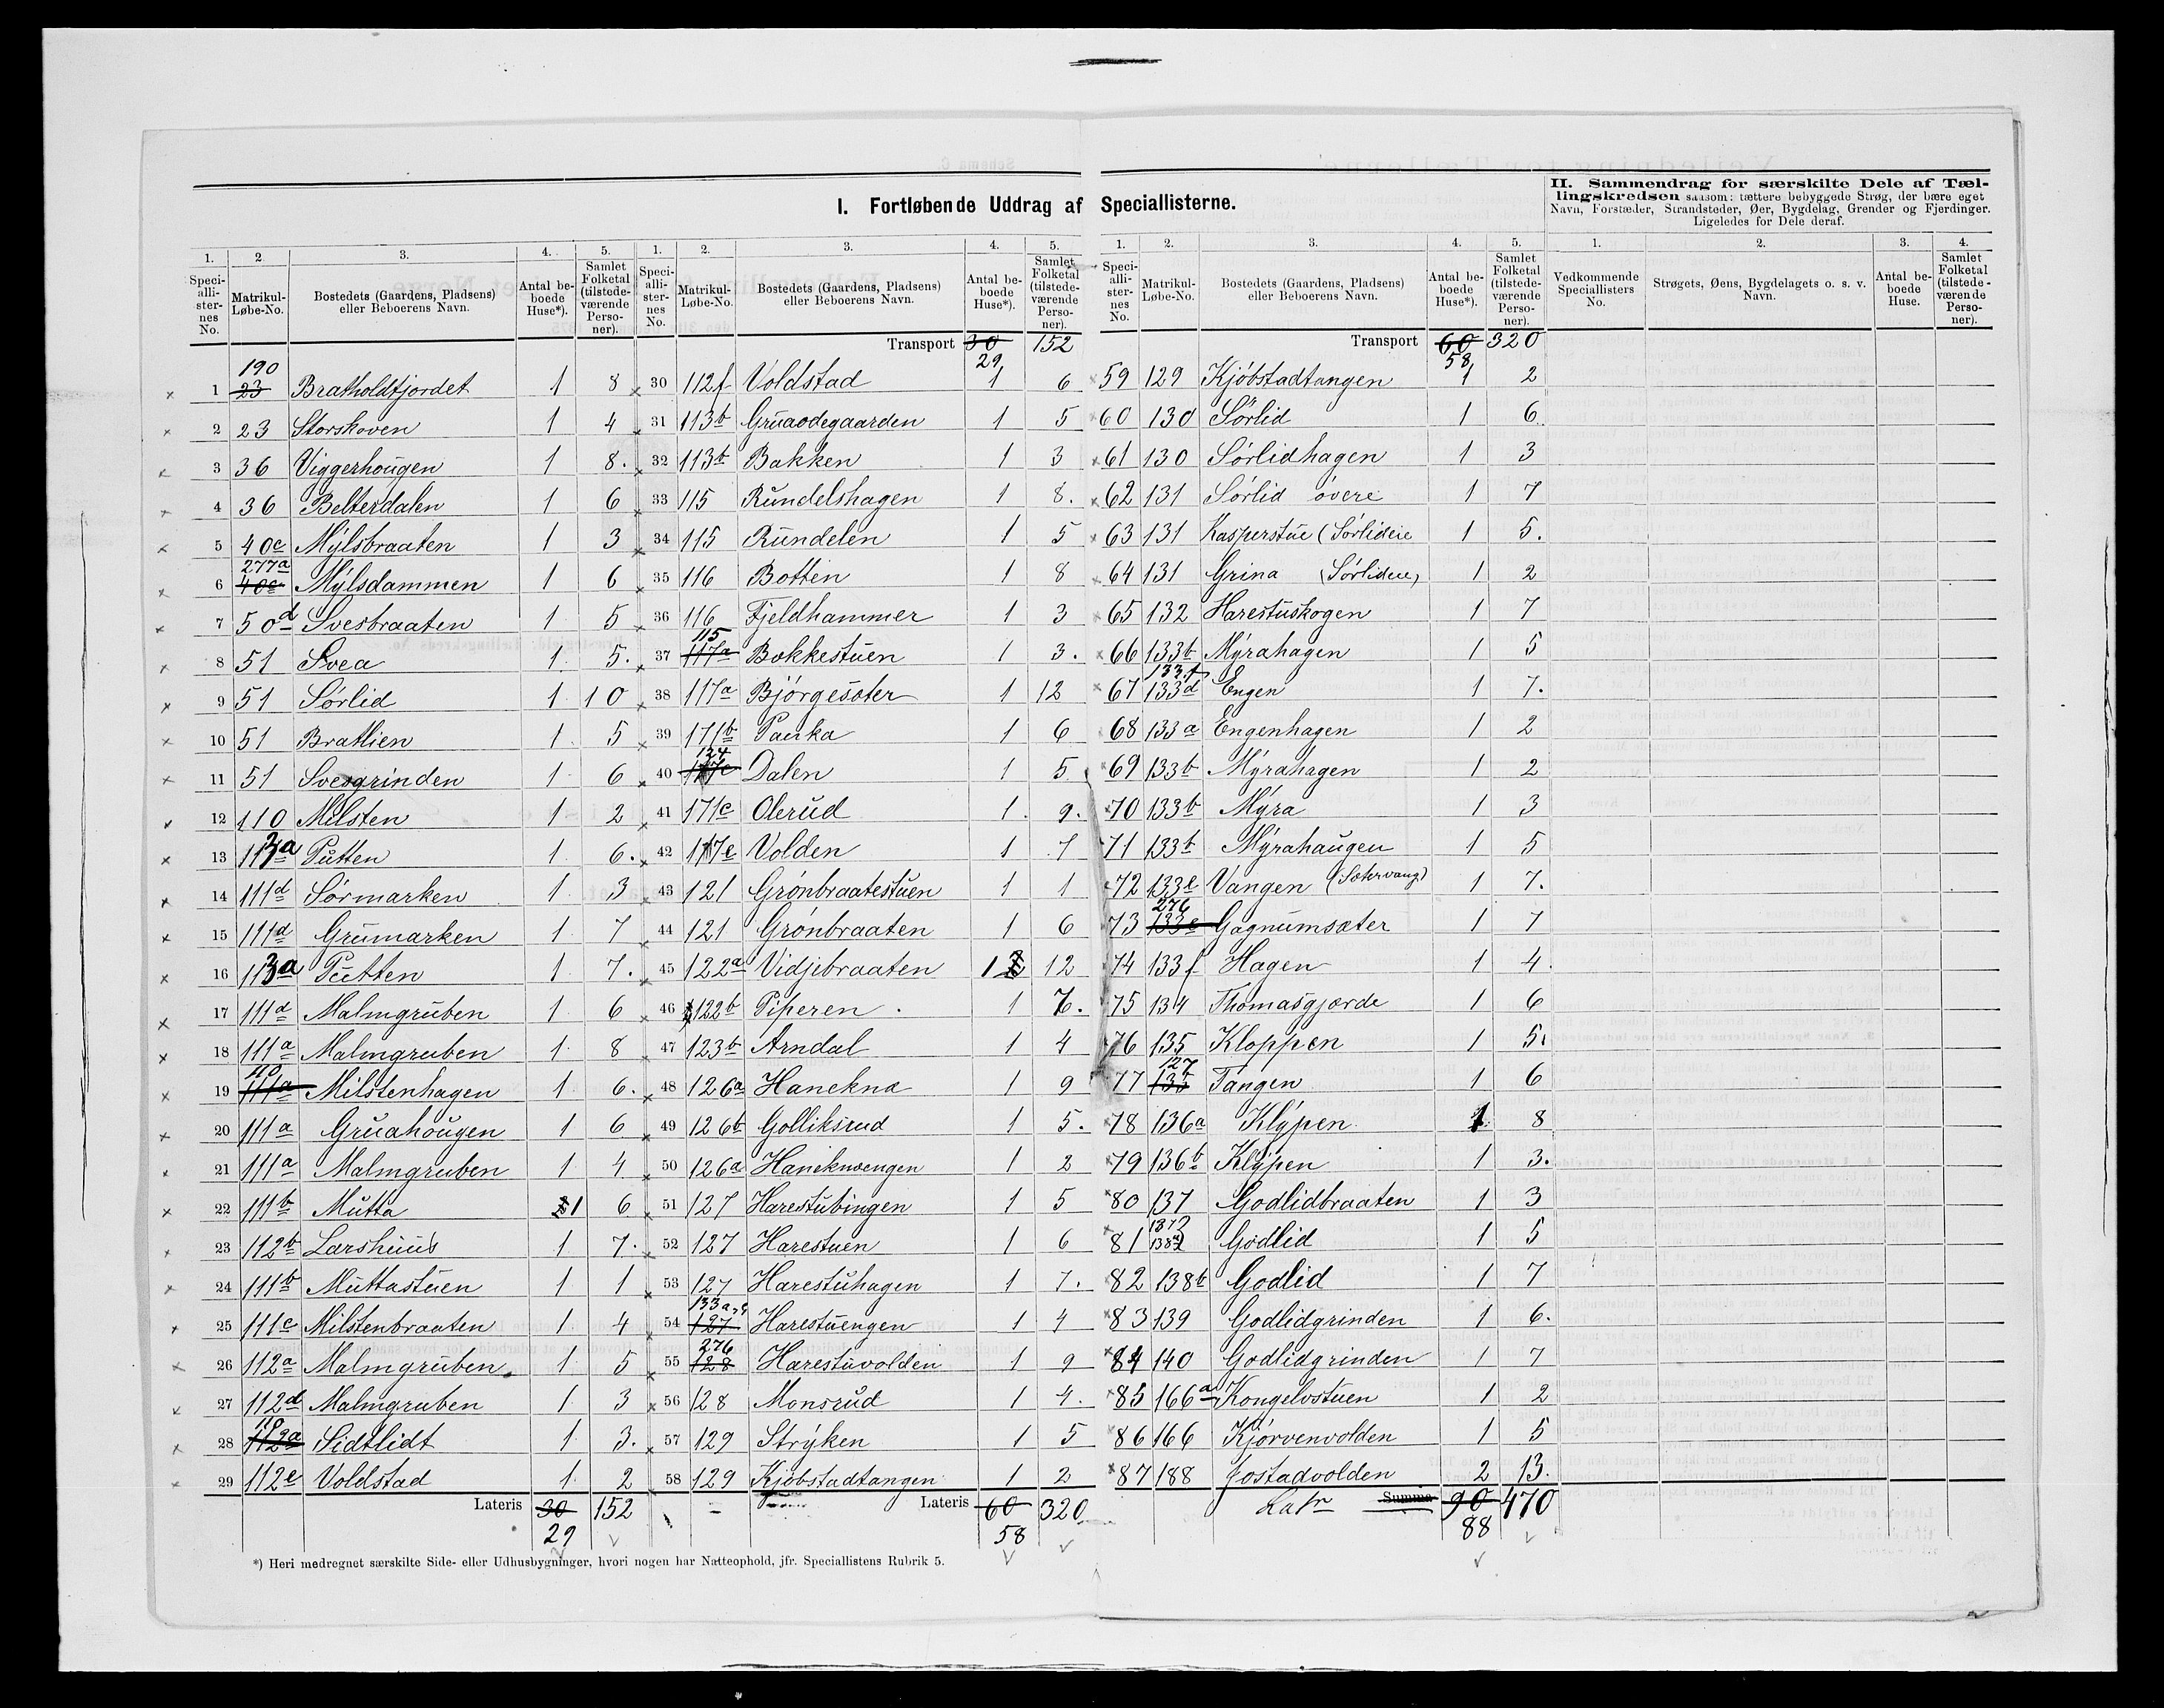 I. Fortløbende Uddrag af Speciallisterne.
II. Sammendrag for særskilte Dele af Tæl-
lingskredsen saasom: tættere bebyggede Strøg, der bære eget
Navn, Forstæder, Strandsteder, Øer, Bygdelag, Grender og Fjerdinger.
Ligeledes for Dele deraf.
1. 2 3. 4. 5.
Speci-alli-ster-nes No. Matrikul-Løbe-No. Bostedets (Gaardens, Pladsens) eller Beboerens Navn. Antal be-boede Huse*). Samlet Folketal (tilstede-værende Perso-ner).
1 190 23 Bratholdtfjordet 1 8
2 23 Storskoven 1 4
3 36 Viggerhougen 1 8.
4 36 Belterdalen 1 6
5 40c Mylsbraaten 1 3
6 277a 40c Mylsdammen 1 6
7 50d Svesbraaten 1 5
8 51 Svea 1 5.
9 51 Sørlid 1 10
10 51 Bratlien 1 5
11 51 Svesgrinden 1 6
12 110 Milsten 1 2
13 113a Putten 1 6.
14 111d Sørmarken 1 3
15 111d Grumarken 1 7
16 113a Putten 1 7.
17 111d Malmgruben 1 6
18 111a Malmgruben 1 8
19 110 111a Milstenhagen 1 6.
20 111a Gruahougen 1 6
21 111a Malmgruben 1 4
22 111b Mutta 1 6
23 112b Larshuus 1 7.
24 111b Muttastuen 1 1
25 111c Milstenbraaten 1 4
26 112a Malmgruben 1 5
27 112d Malmgruben 1 3
28 110 112a Sidtlidt 1 3.
29 112e Voldstad 1 2
Lateris 30 152
29
1. 2. 3. 4. 5.
Speci-alli-ster-nes No. Matrikul-Løbe-No. Bostedets (Gaardens, Pladsens) eller Beboerens Navn. Antal be-boede Huse*). Samlet Folketal (tilstede-værende Perso-ner).
Transport 30 152
29
30 112f Voldstad 1 6
31 113b Gruaodegaarden 1 5
32 113b Bakken 1 3
33 115 Rundelshagen 1 8.
34 115 Rundelen 1 5
35 116 Botten 1 8
36 116 Fjeldhammer 1 3
37 115 117a Bokkestuen 1 3.
38 117a Bjørgesæter 1 12
39 171b Pauka 1 6
40 124 Dalen 1 5
41 171c Olerud 1. 9.
42 117e Volden 1 7
43 121 Grønbraatestuen 1 1
44 121 Grønbraaten 1 6
45 122a Vidjebraaten 1 12
46 122b Piperen 1 7.
47 123b Arndal 1 4
48 126a Hanekna 1 9
49 126b Golliksrud 1 5.
50 126a Haneknæengen 1 2
51 127 Harestubingen 1 5
52 127 Harestuen 1 6
53 127 Harestuhagen 1 7.
54 127 Harestuengen 1 4
55 276 128 Harestuvolden 1 9
56 128 Monsrud 1 4.
57 129 Stryken 1 5
58 129 Kjøbstadtangen 1 2
Lateris 60 320
58
1. 2. 3. 4. 5.
Speci-alli-ster-nes No. Matrikul-Løbe-No. Bostedets (Gaardens, Pladsens) eller Beboerens Navn. Antal be-boede Huse*). Samlet Folketal (tilstede-værende Perso-ner).
Transport 60 320
58
59 129 Kjøbstadtangen 1 2
60 130 Sørlid 1 6.
61 130 Sørlidhagen 1 3
62 131 Sørlid øvere 1 7
63 131 Kasperstue (Sørlideie 1 5.
64 131 Grina (Sørlideie) 1 2
65 132 Harestuskogen 1 7
66 133b Myrahagen 1 5
67 133f 133d Engen 1 7.
68 133a Engenhagen 1 2
69 133b Myrahagen 1 2
70 133b Myra 1 3
71 133b Myrahaugen 1 5
72 133e Vangen (Sætervang) 1 7.
73 276 133e Gagnumsæter 1 7
74 133f Hagen 1 4.
75 134 Thomasgjærde 1 6
76 135 Kloppen 1 5.
77 127 135 Tangen 1 6
78 136a Klypen 1 8
79 136b Klypen 1 3.
80 137 Godlidbraaten 1 3
81 Godlid 1 5
82 138b Godlid 1 7
83 139 Godlidgrinden 1 6.
84 140 Godlidgrinden 1 7
85 166a Kongelvstuen 1 2
86 166 Kjørvenvolden 1 5
87 188 Jostadvolden 2 13.
Latr Summa 90 470
88
1. 2. 3. 4.
Vedkommende Speciallisters No. Strøgets, Øens, Bygdelagets o. s. v. Navn. Antal be-boede Huse. Samlet Folketal (tilstede-værende Perso-ner).
*) Heri medregnet særskilte Side- eller Udhusbygninger, hvori nogen har Natteophold, jfr. Speciallistens Rubrik 5.